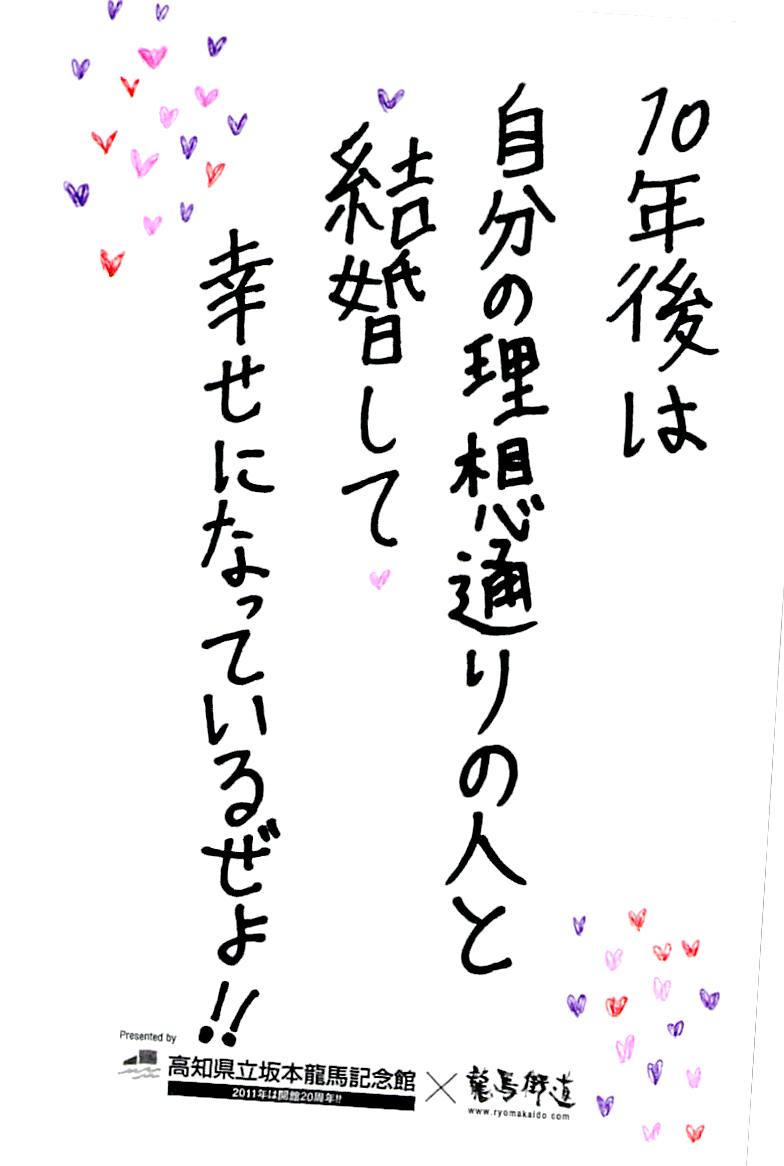 10年後は
自分の理想通りの人と
結婚して
幸せになっているぜよ!!
Presented by
高知県立坂本龍馬記念館
2011年は開館20周年!!
×
龍馬街道
www.ryomakaido.com